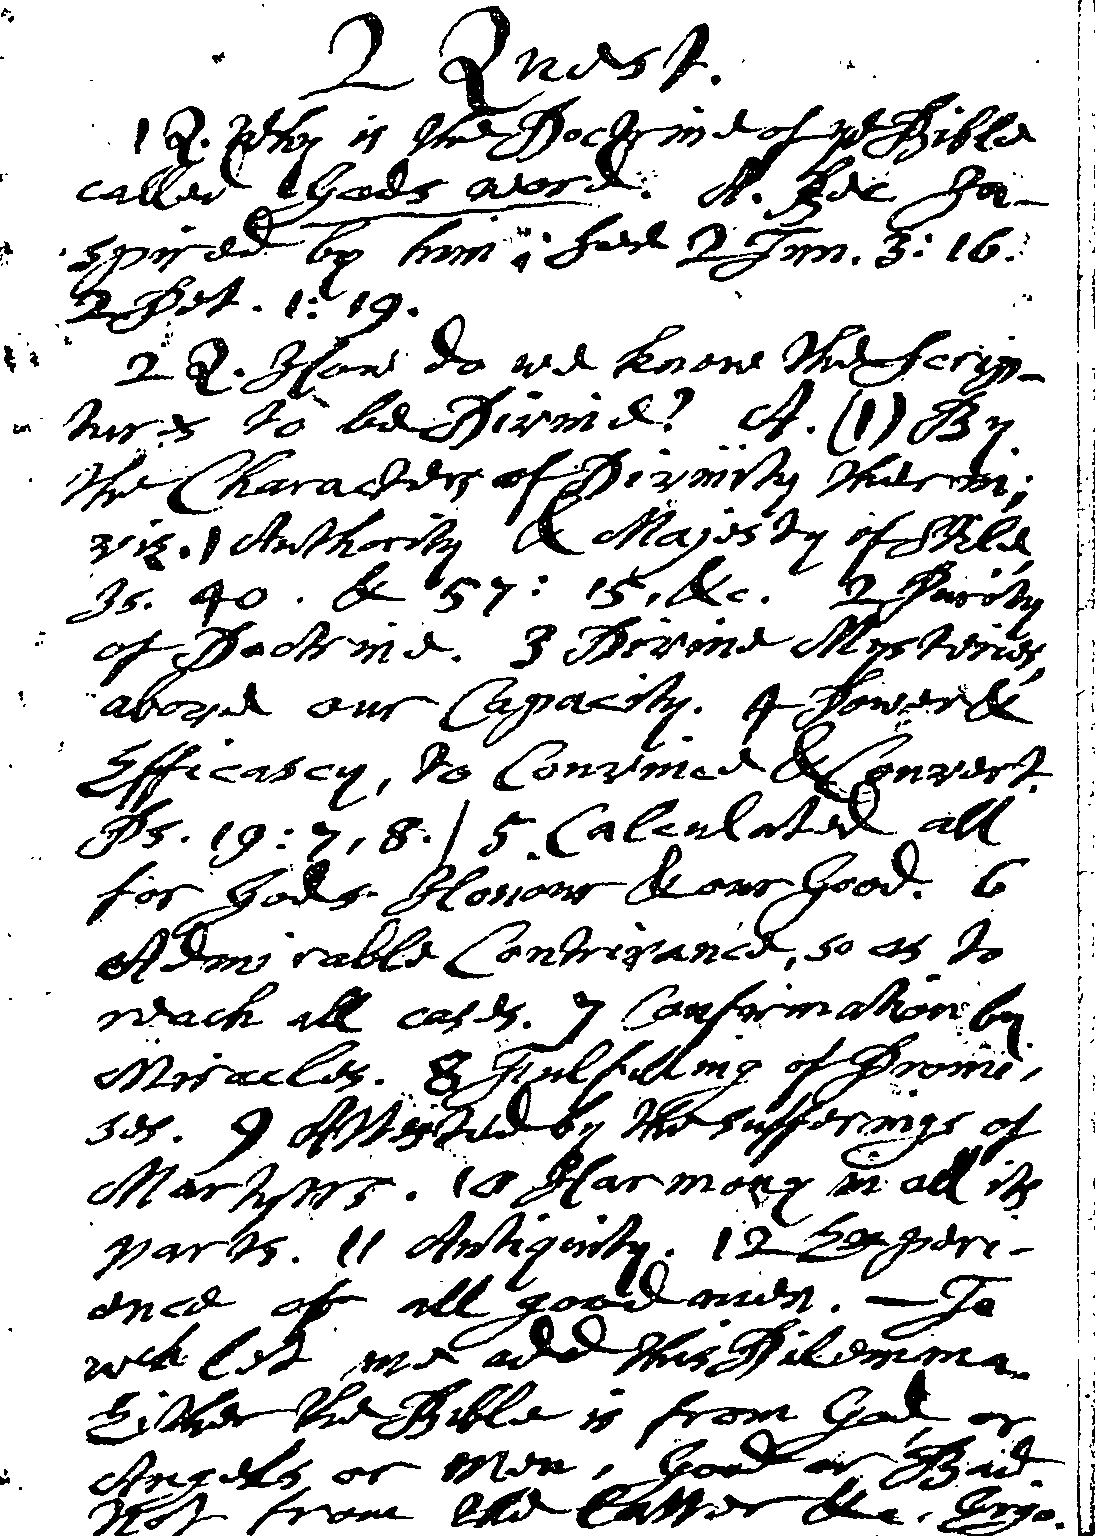 2 Quest.
1 Q. Why is the Doctrine of ye Bible
called Gods word. A. Bec In-
spired by him; see 2 Tim. 3: 16.
2 Pet. 1: 19.
2 Q. How do we know the Scrip-
tures to be Divine? A. (1) By
the Characters of Divinity therein;
viz. 1 Authority & Majesty of Stile,
Is. 40. & 57: 15, &c. 2 Purity
of Doctrine. 3 Divine Mysteries,
above our Capacity. 4 Power &
Efficacy, to Convince & Convert.
Ps. 19: 7, 8. / 5 Calculated all
for Gods Honour & our Good. 6
Admirable Contrivance, so as to
reach all cases. 7 Confirmation by
Miracles. 8 Fulfilling of Promi-
ses. 9 Attested by the sufferings of
Martyrs. 10 Harmony in all its
parts. 11 Antiquity. 12 Experi-
ence of all good men. — To
wch let me add this Dilemma.
Either the Bible is from God, or
Angels or Men, Good or Bad.
Not from the Latter &c. Ergo.